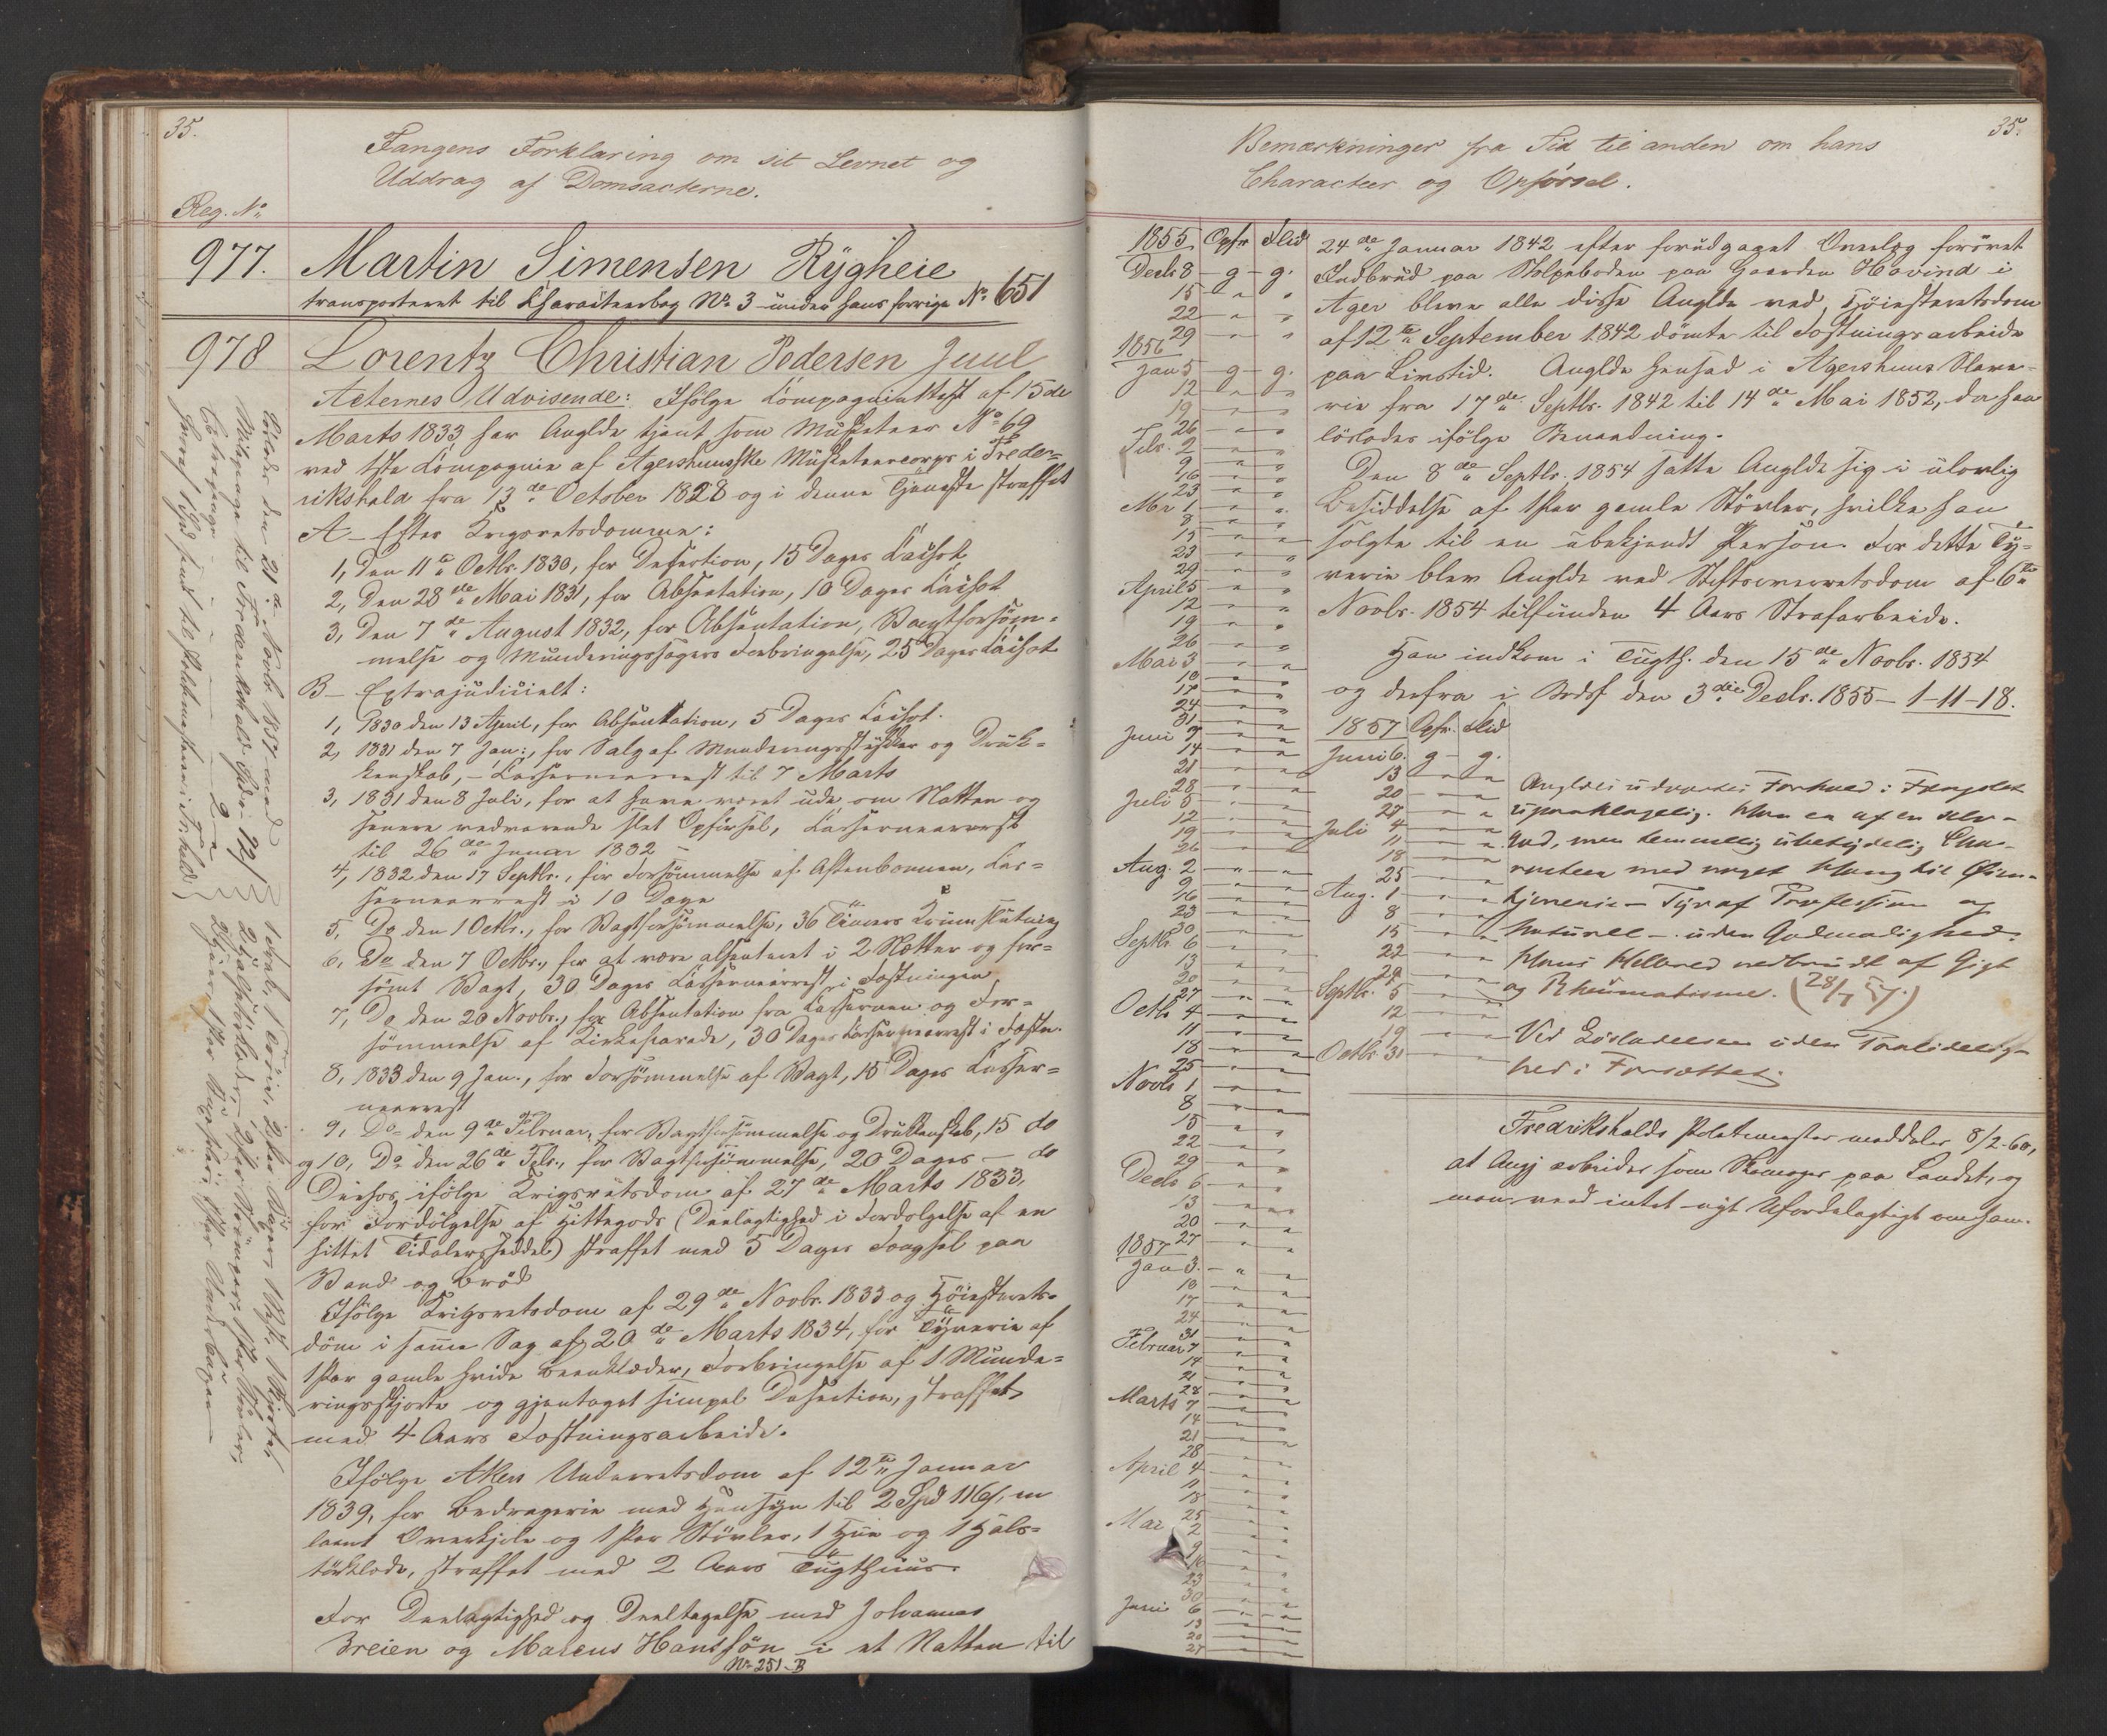 35.
Fangens Forklaring om sit Levnet og
Uddrag af Domsacterne.
Reg. No
977. Martin Simensen Rÿgheie
transporteret til Characteerbog No 3 under hans forrige No 651
978 Lorentz Christian Pedersen Juul
Acternes Udvisende: Ifölge Compagnieattest af 15de
Marts 1833, har Anglde tjent som Musketeer No 69
ved 1ste Compagnie af Agershuusske Musketeercorps i Freder-
rikshald fra 13de October 1828 og i denne Tjeneste straffet
A - Efter Krigsretsdomme:
1, Den 11te Octbr. 1830, for Desertion, 15 Dages Cachot
2, Den 28de Mai 1831, for Absentation, 10 Dages Cachot
3, Den 7de August 1832, for Absentation, Vagtforsöm-
melse og Munderingssagers Forbringelse, 25 Dages Cachot
B - Extrajudicielt:
1, 1830 den 13 April, for Absentation, 5 Dages Cachot.
2, 1831 den 7 Jan:, for Salg af Munderingsstÿkker og Druk-
kenskab, - Cassernearrest til 7 Marts
3, 1831 den 8 Juli, for at have været ude om Natten og
senere vedvarende slet Opförsel, Cassernearrest
til 26de Januar 1832 -
4, 1832 den 17 Septbr., for Forsömmelse af Aftenbönnen, Cas-
sernearrest i 10 Dage
5, Do den 1 Octbr., for Vagtforsömmelse, 36 Timers Krumslutning
6, Do den 7 Octbr., for at være absenteret i 2 Nætter og for-
sömt Vagt, 30 Dages Cassernearrest i Fæstningen
7, Do den 20 Novbr., for Absentation fra Cassernen og For-
sömmelse af Kirkeparade, 30 Dages Cassernearrest i Fæstn.
8, 1833 den 9 Jan., for Forsömmelse af Vagt, 15 Dages Casser-
nearrest
9, Do den 9de Februar, for Vagtforsömmelse og Drukkenskab, 15 do
og 10, Do den 26de Febr., for Vagtforsömmelse, 20 Dages - do
Derhos ifölge Krigsretsdom af 27de Marts 1833,
for Fordölgelse af Hittegods (Deelagtighed i Fordölgelse af en
hittet Tidalersseddel) straffet med 5 Dages Fængsel paa
Vand og Bröd
Ifölge Krigsretsdom af 29de Novbr. 1833 og Höiesterets-
dom i samme Sag af 20de Marts 1834, for Tÿverie af
1 Par gamle hvide Beenklæder, Forbringelse af 1 Munde-
ringsskjorte og gjentaget simpel Desertion, straffet
med 4 Aars Fæstningsarbeide.
Ifölge Akers Underretsdom af 12te Januar
1839, for Bedragerie med Hensÿn til 2 Spd 116 s, en
laant Overkjole og 1 Par Stövler, 1 Hue og 1 Hals-
törklæde, straffet med 2 Aars Tugthuus.
For Deelagtighed og Deeltagelse med Johannes
Breien og Marcus Hanssön i et Natten til
No 251-B
Löslades den 21de Novbr. 1857 med
Miligenage til Frederikshald
Extrapenge
hvoraf sendt til Politimesteren i Frhald.
35.
Bemærkninger fra Tid til anden om hans
Characteer og Opförsel.
24de Januar 1842 efter forudgaaet Overlæg forövet
Indbrud paa Stolpeboden paa Gaarden Hovind i
Ager bleve alle disse Anglde ved Höiesteretsdom
af 12te September 1842 dömte til Fæstningsarbeide
paa Livstid. Anglde hensad i Agershuus Slave-
rie fra 17de Septbr. 1842 til 14de Mai 1852, da han
löslodes ifölge Benaadning.
Den 8de Septbr. 1854 satte Anglde sig i ulovlig
Besiddelse af 1 Par gamle Stövler, hvilke han
solgte til en ubekjendt Person. For dette Tÿ-
verie blev Anglde ved Stiftsoverretsdom af 6te
Novbr. 1854 tilfunden 4 Aars Strafarbeide.
Han indkom i Tugth. den 15de Novbr. 1854
og derfra i Bodsf. den 3die Decbr. 1855 - 1-11-18.
1855 Opfr Flid
Decbr 8 - g - g.
15
22
29
1856
Jan 5 - g - g.
12
19
26
Febr. 2
9
16
23
Mr 1
8
15
23
29
April 5
12
19
26
Mai 3
10
17
24
31
Juni 7
14
21
28
Juli 5
12
19
26
Aug. 2
9
16
23
30
Septbr 6
13
20
27
Octbr 4
11
18
25
Novbr 1
8
15
22
29
Decbr 6
13
20
27
1857
Jan 3.
10
17
24
31
Februar 7
14
21
28
Marts 7
14
21
28
April 4
11
18
25
Mai 2
9
16
23
30
Juni 6
13
20
27
1857 Opfr. Flid
Juni 6. g - g.
13
20
27
Juli 4
11
18
25
Aug. 1
8
15
22
29
Septbr. 5
12
19
Octbr 31
Angldes udvortes Forhold i Fængslet
upaaklagelig. Han er af en
god, men temmelig ubetydelig Cha-
racteer med noget Hang til Öien-
tjenerie - Tyv af Profession og
Naturel - uden Godmodighed.
Hans Helbred nedbrudt af Gigt
og Rheumatisme. (28/7 57.)
Ved Lösladelsen uden Paalidelig-
hed i Forsættet.
Fredrikshalds Politimester meddeler 8/2-60,
at Angj arbeider som Skomager paa Landet, og
man veed intet nyt Ufordelagtigt om ham.